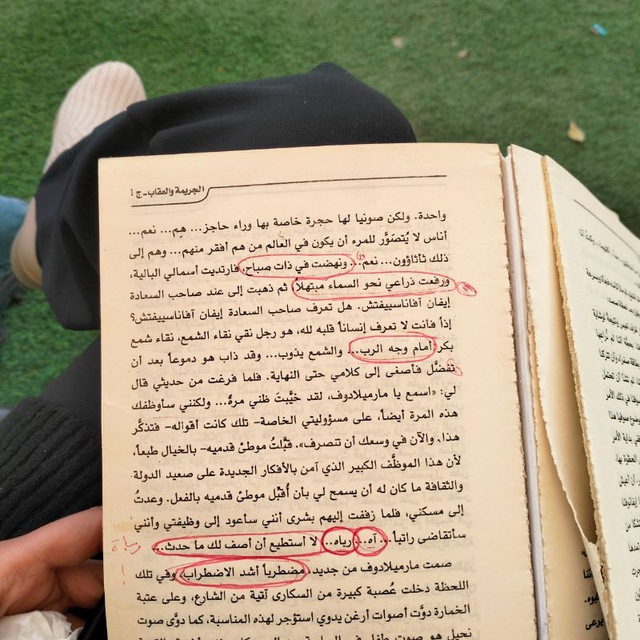 الجريمة والعقاب - ج 1
واحدة. ولكن صونيا لها حجرة خاصة بها وراء حاجز... هم... نعم...
أناس لا يُتصوَّر للمرء أن يكون في العالم من هم أفقر منهم... وهم إلى
ذلك ثأثاؤون... نعم... ونهضت في ذات صباح، فارتديت أسمالي البالية،
ورفعت ذراعي نحو السماء مبتهلاً ثم ذهبت إلى عند صاحب السعادة
إيفان آفاناسييفتش. هل تعرف صاحب السعادة إيفان آفاناسييفتش؟
إذاً فأنت لا تعرف إنساناً قلبه لله، هو رجل نقي نقاء الشمع، نقاء شمع
بكر أمام وجه الرب... والشمع يذوب... وقد ذاب هو دموعاً بعد أن
تفضَّل فأصغى إلى كلامي حتى النهاية. فلما فرغت من حديثي قال
لي: «اسمع يا مارميلادوف، لقد خيَّبت ظني مرةً... ولكنني سأوظفك
هذه المرة أيضاً، على مسؤوليتي الخاصة- تلك كانت أقواله- فتذكَّر
هذا. والآن في وسعك أن تنصرف». قبَّلتُ موطئ قدميه- بالخيال طبعاً،
لأن هذا الموظَّف الكبير الذي آمن بالأفكار الجديدة على صعيد الدولة
والثقافة ما كان له أن يسمح لي بأن أُقبِّل موطئ قدميه بالفعل. وعدتُ
إلى مسكني، فلما زففت إليهم بشرى أنني سأعود إلى وظيفتي وأنني
سأتقاضى راتباً... آه... رباه... لا أستطيع أن أصف لك ما حدث...
صمت مارميلادوف من جديد، مضطرباً أشد الاضطراب، وفي تلك
اللحظة دخلت عُصبة كبيرة من السكارى آتية من الشارع، وعلى عتبة
الخمارة دوَّت أصوات أرغن يدوي استؤجر لهذه المناسبة، كما دوَّى صوت
نحيل هو صوت طفل في